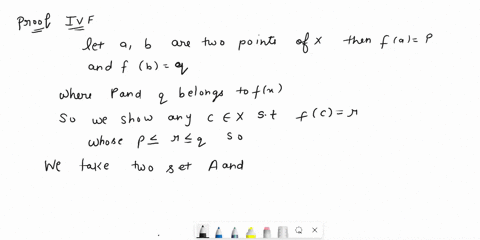 Proof IVF
let a, b are two points of X then f(a)=P
and f (b)=q
where P and q belongs to f(x)
So we show any c ∈ X s.t f(c)=r
whose p ≤ r ≤ q so
We take two set A and